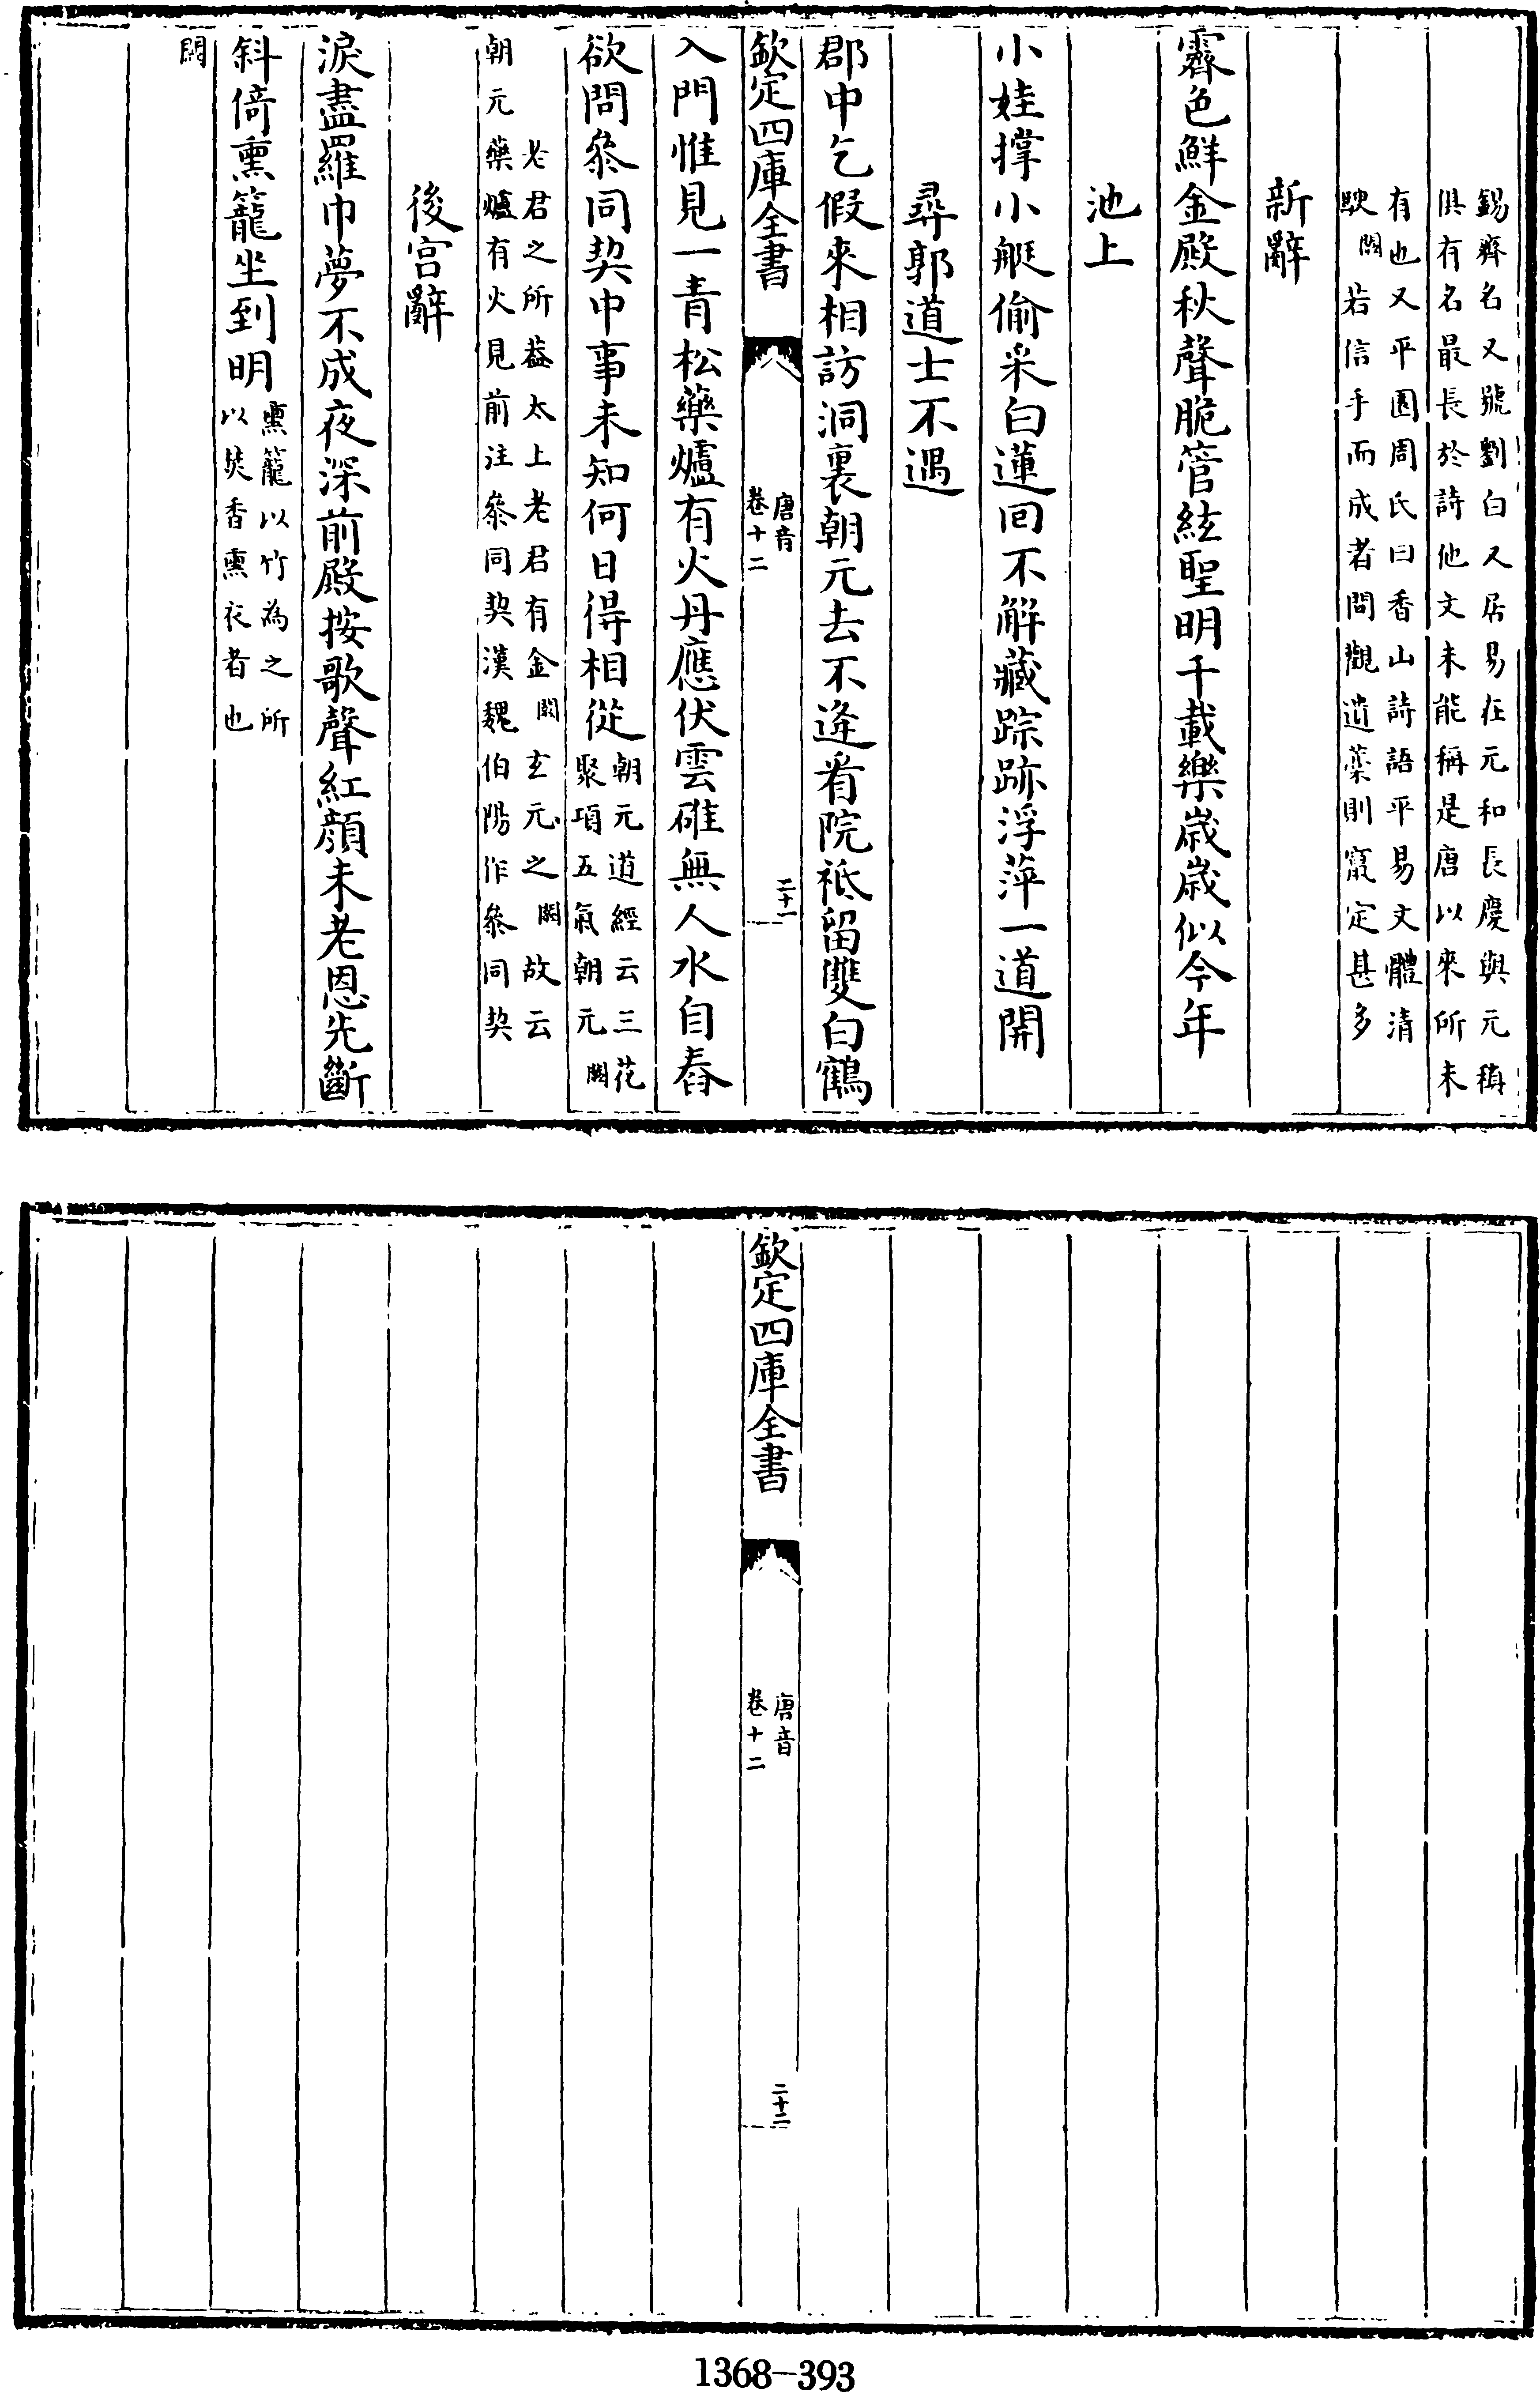 錫齊名又號劉白又居易在元和長慶與元稹
俱有名最長於詩他文未能稱是唐以來所未
有也又平園周氏曰香山詩語平易文體清
駛闕若信手而成者間觀遺藁則竄定甚多
新辭
霽色鮮金殿秋聲脆管絃聖明千載樂歲歲似今年
池上
小娃撑小艇偷采白蓮回不解藏踪跡浮萍一道開
尋郭道士不遇
郡中乞假來相訪洞裏朝元去不逢看院祗留雙白鶴
欽定四庫全書
唐音
卷十二
二十一
入門惟見一青松藥爐有火丹應伏雲碓無人水自舂
欲問叅同契中事未知何日得相從
朝元道經云三花
聚項五氣朝元闕
老君之所葢太上老君有金闕玄元之闕故云
朝元藥爐有火見前注叅同契漢魏伯陽作叅同契
後宫辭
淚盡羅巾夢不成夜深前殿按歌聲紅顔未老恩先斷
斜倚熏籠坐到明
熏籠以竹為之所
以焚香熏衣者也
闕
欽定四庫全書
唐音
卷十二
二十二
1368-393